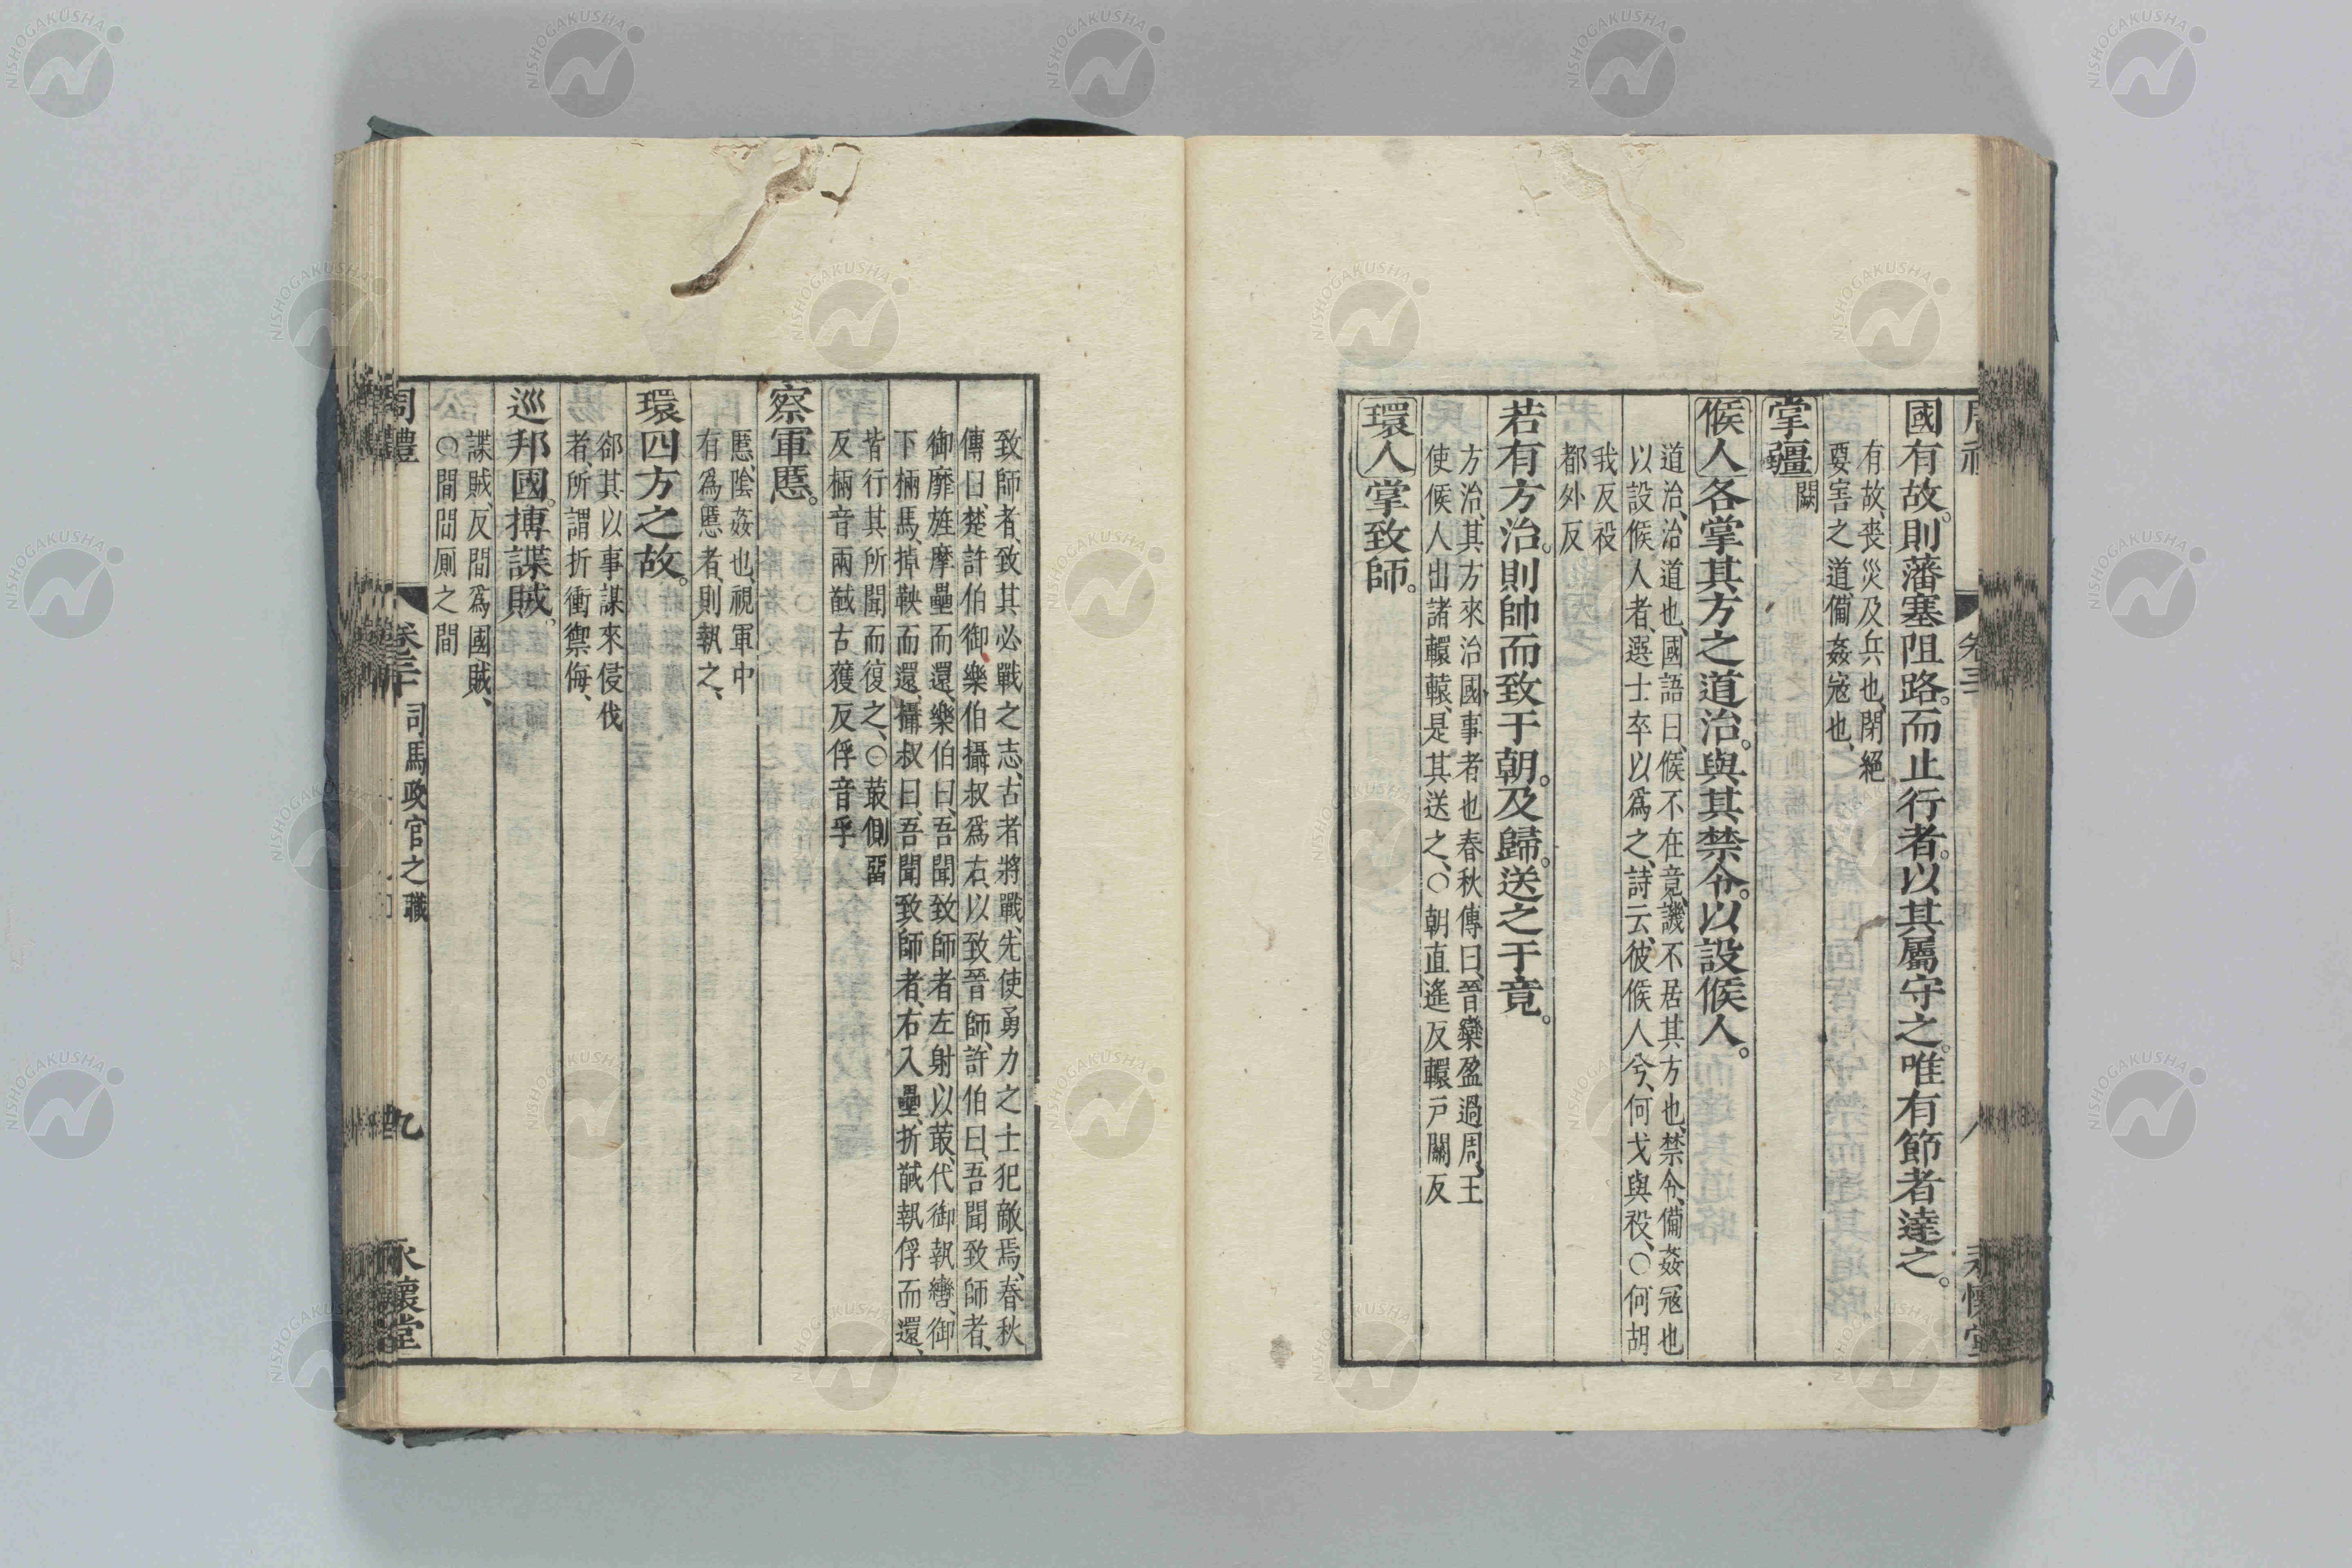 國有故。則藩塞阻路。而止行者。以其屬守之。唯有節者達之。
有故、喪災及兵也、閉絕
要害之道、備姦宼也、
掌疆闕
候人各掌其方之道治。與其禁令。以設候人。
道治、治道也、國語曰、候不在竟、譏不居其方也、禁令、備姦宼也
以設候人者、選士卒以爲之、詩云、彼候人兮、何戈與祋、○何胡
我反祋
都外反
若有方治。則帥而致于朝。及歸。送之于竟。
方治、其方來治國事者也春秋傳曰、晉欒盈過周、王
使候人出諸轘轅、是其送之、○朝直遙反轘戸關反
環人掌致師。
致師者、致其必戰之志、古者將戰、先使勇力之士犯敵焉、春秋
傳曰、楚許伯御樂伯攝叔爲右、以致晉師、許伯曰、吾聞致師者、
御靡旌摩壘而還、樂伯曰、吾聞致師者左射以菆、代御執轡、御
下㭢馬、掉鞅而還、攝叔曰、吾聞致師者、右入壘、折馘執俘而還、
皆行其所聞而復之、○菆側畱
反㭢音兩馘古獲反俘音孚
察軍慝。
慝、陰姦也、視軍中
有爲慝者、則執之、
環四方之故。
郤其以事謀來侵伐
者、所謂折衝禦侮、
巡邦國。搏諜賊。
諜賊、反間爲國賊、
○間間厠之間
周禮
卷三十
司馬政官之職
九
永懷堂